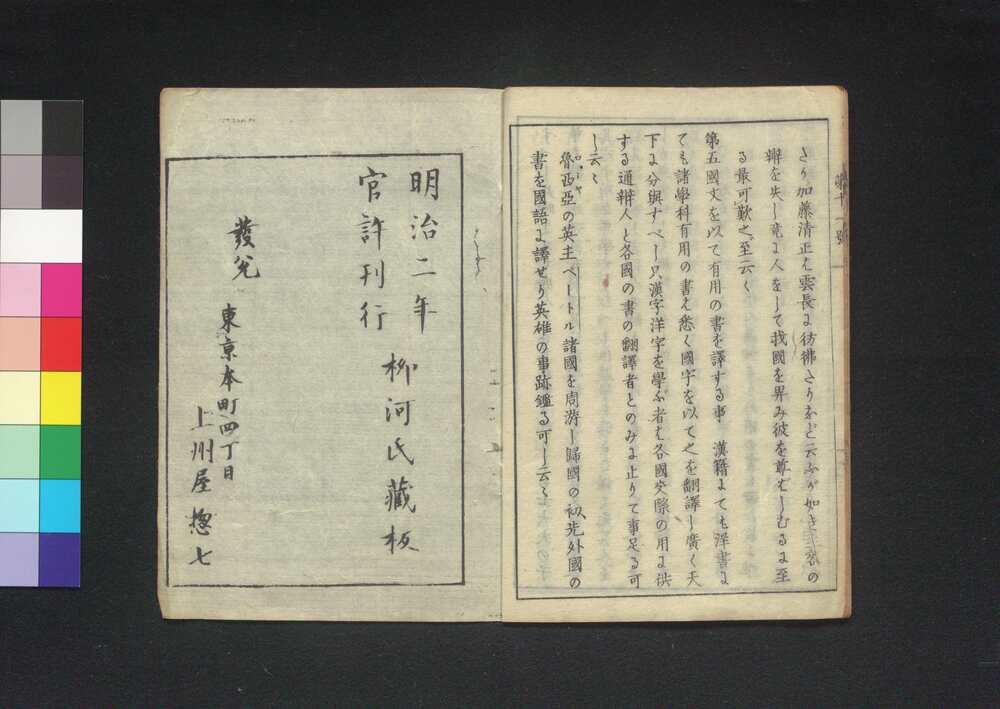 第十一號
さり加藤清正は雲長に彷彿さりなど云ふが如き主客の
辨を失し竟に人をして我國を卑み彼を尊むしむるに至
る最可歎之至云〻
第五國文を以て有用の書を譯する事 漢籍にても洋書に
ても諸學科有用の書は悉く國字を以て之を翻譯し廣く天
下に分與すべし只漢字洋字を學ぶ者は各國交際の用に供
する通辯人と各國の書の翻譯者とのみに止りて事足る可
し云〻
魯西亞の英主ペートル諸國を周游し歸國の初先外國の
書を國語に譯せり英雄の事跡鑑る可し云〻
明治二年
柳河氏藏板
官許刊行
發兌
東京本町四丁目
上州屋惣七